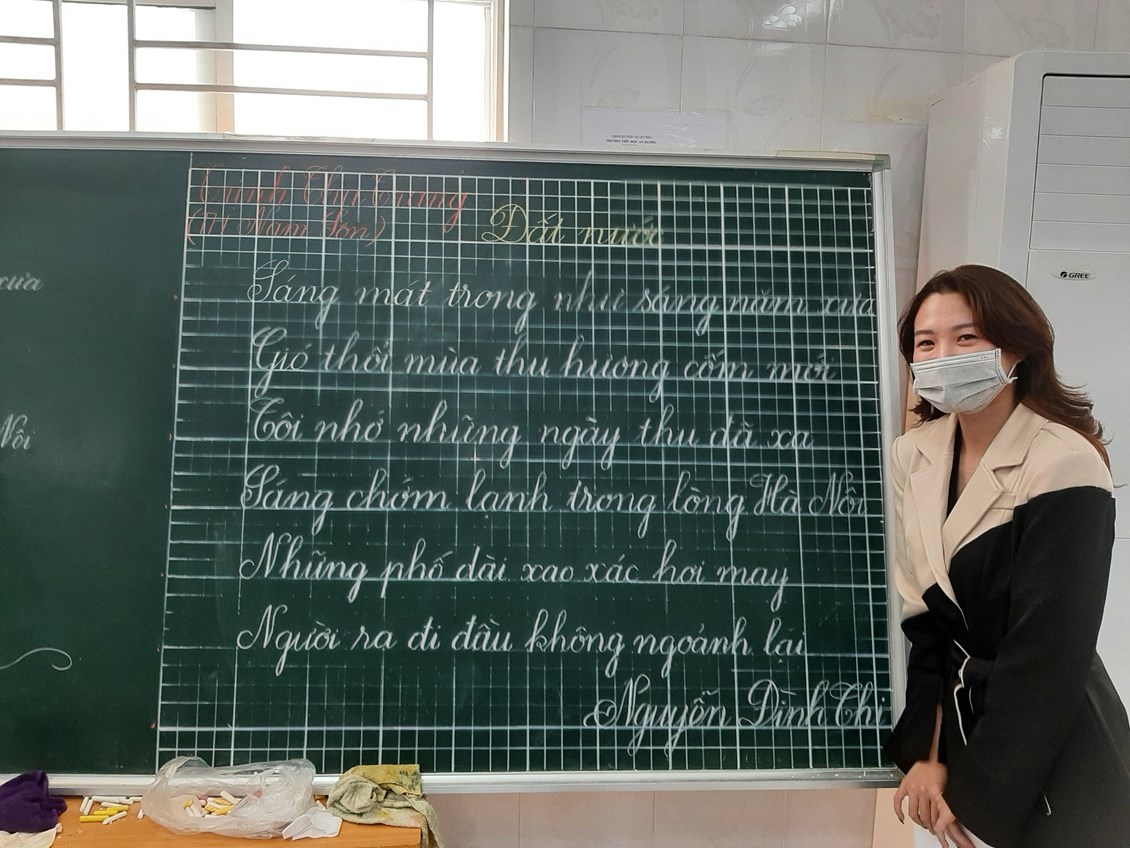 Thu Trang
(TH Nam Sơn)
Đất nước
Sáng mát trong như sáng năm xưa
Gió thổi mùa thu hương cốm mới
Tôi nhớ những ngày thu đã xa
Sáng chớm lạnh trong lòng Hà Nội
Những phố dài xao xác hơi may
Người ra đi đầu không ngoảnh lại
Nguyễn Đình Thi
xưa
Nội
UBND HUYỆN AN DƯƠNG
TRƯỜNG TIỂU HỌC AN DƯƠNG
GREE